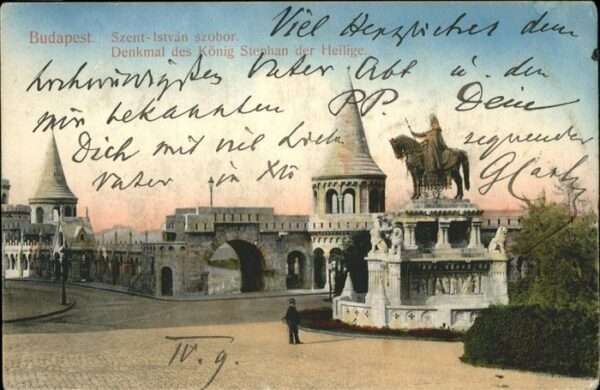 Budapest. Szent-István szobor.
Denkmal des König Stephan der Heilige.
Viel Herzliches dem
hochwürdigsten Vater Abt u. den
mir bekannten PP. Deine
Dich mit viel Liebe segnender
Vater in Xto
IV. 9.